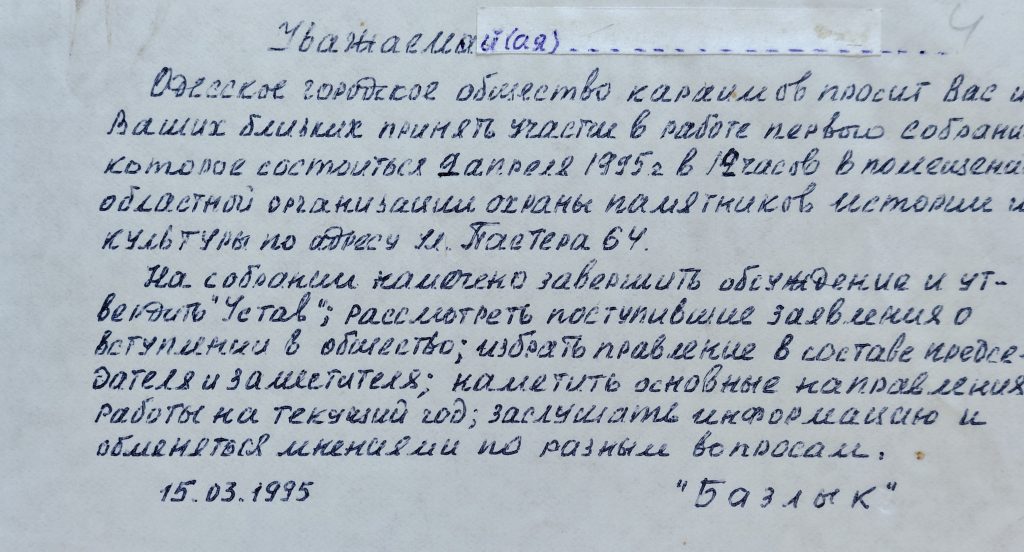 4
Уважаемый(ая)........................
Одесское городское общество караимов просит Вас и
Ваших близких принять участи в работе первого собрани
которое состоиться 9 апреля 1995г в 12 часов в помещени
областной организации охраны памятников истории и
культуры по адресу ул. Пастера 64.
На собрании намечено завершить обсуждение и ут-
вердить "Устав"; рассмотреть поступившие заявления о
вступлении в общество; избрать правление в составе предсе-
дателя и заместителя; наметить основные направления
работы на текущий год; заслушать информацию и
обменяться мнениями по разным вопросам.
15.03.1995 "Базлык"